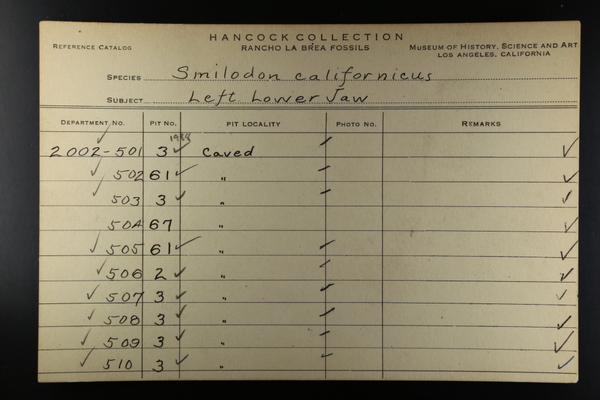 HANCOCK COLLECTION
REFERENCE CATALOG RANCHO LA BREA FOSSILS MUSEUM OF HISTORY, SCIENCE AND ART
LOS ANGELES, CALIFORNIA
SPECIES Smilodon californicus
SUBJECT Left Lower Jaw
DEPARTMENT NO. PIT NO. PIT LOCALITY PHOTO NO. REMARKS
2002-501 3 ✓ Caved ✓
✓ 502 61 ✓ " ✓
✓ 503 3 ✓ " ✓
504 67 " ✓
✓ 505 61 ✓ " ✓
✓ 506 2 ✓ " ✓
✓ 507 3 ✓ " ✓
✓ 508 3 ✓ " ✓
✓ 509 3 ✓ " ✓
✓ 510 3 ✓ " ✓